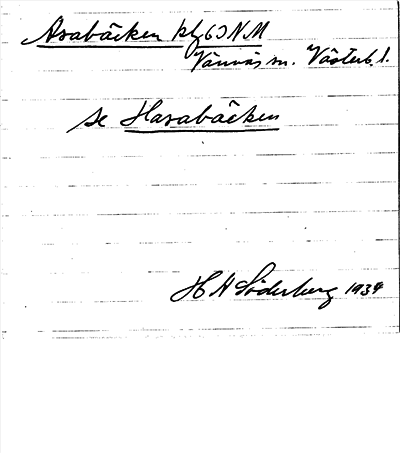 Asabäcken kbl 63 N M
Vännäs sn. Västerb. l.
se Harabäcken
H H Söderberg 1934